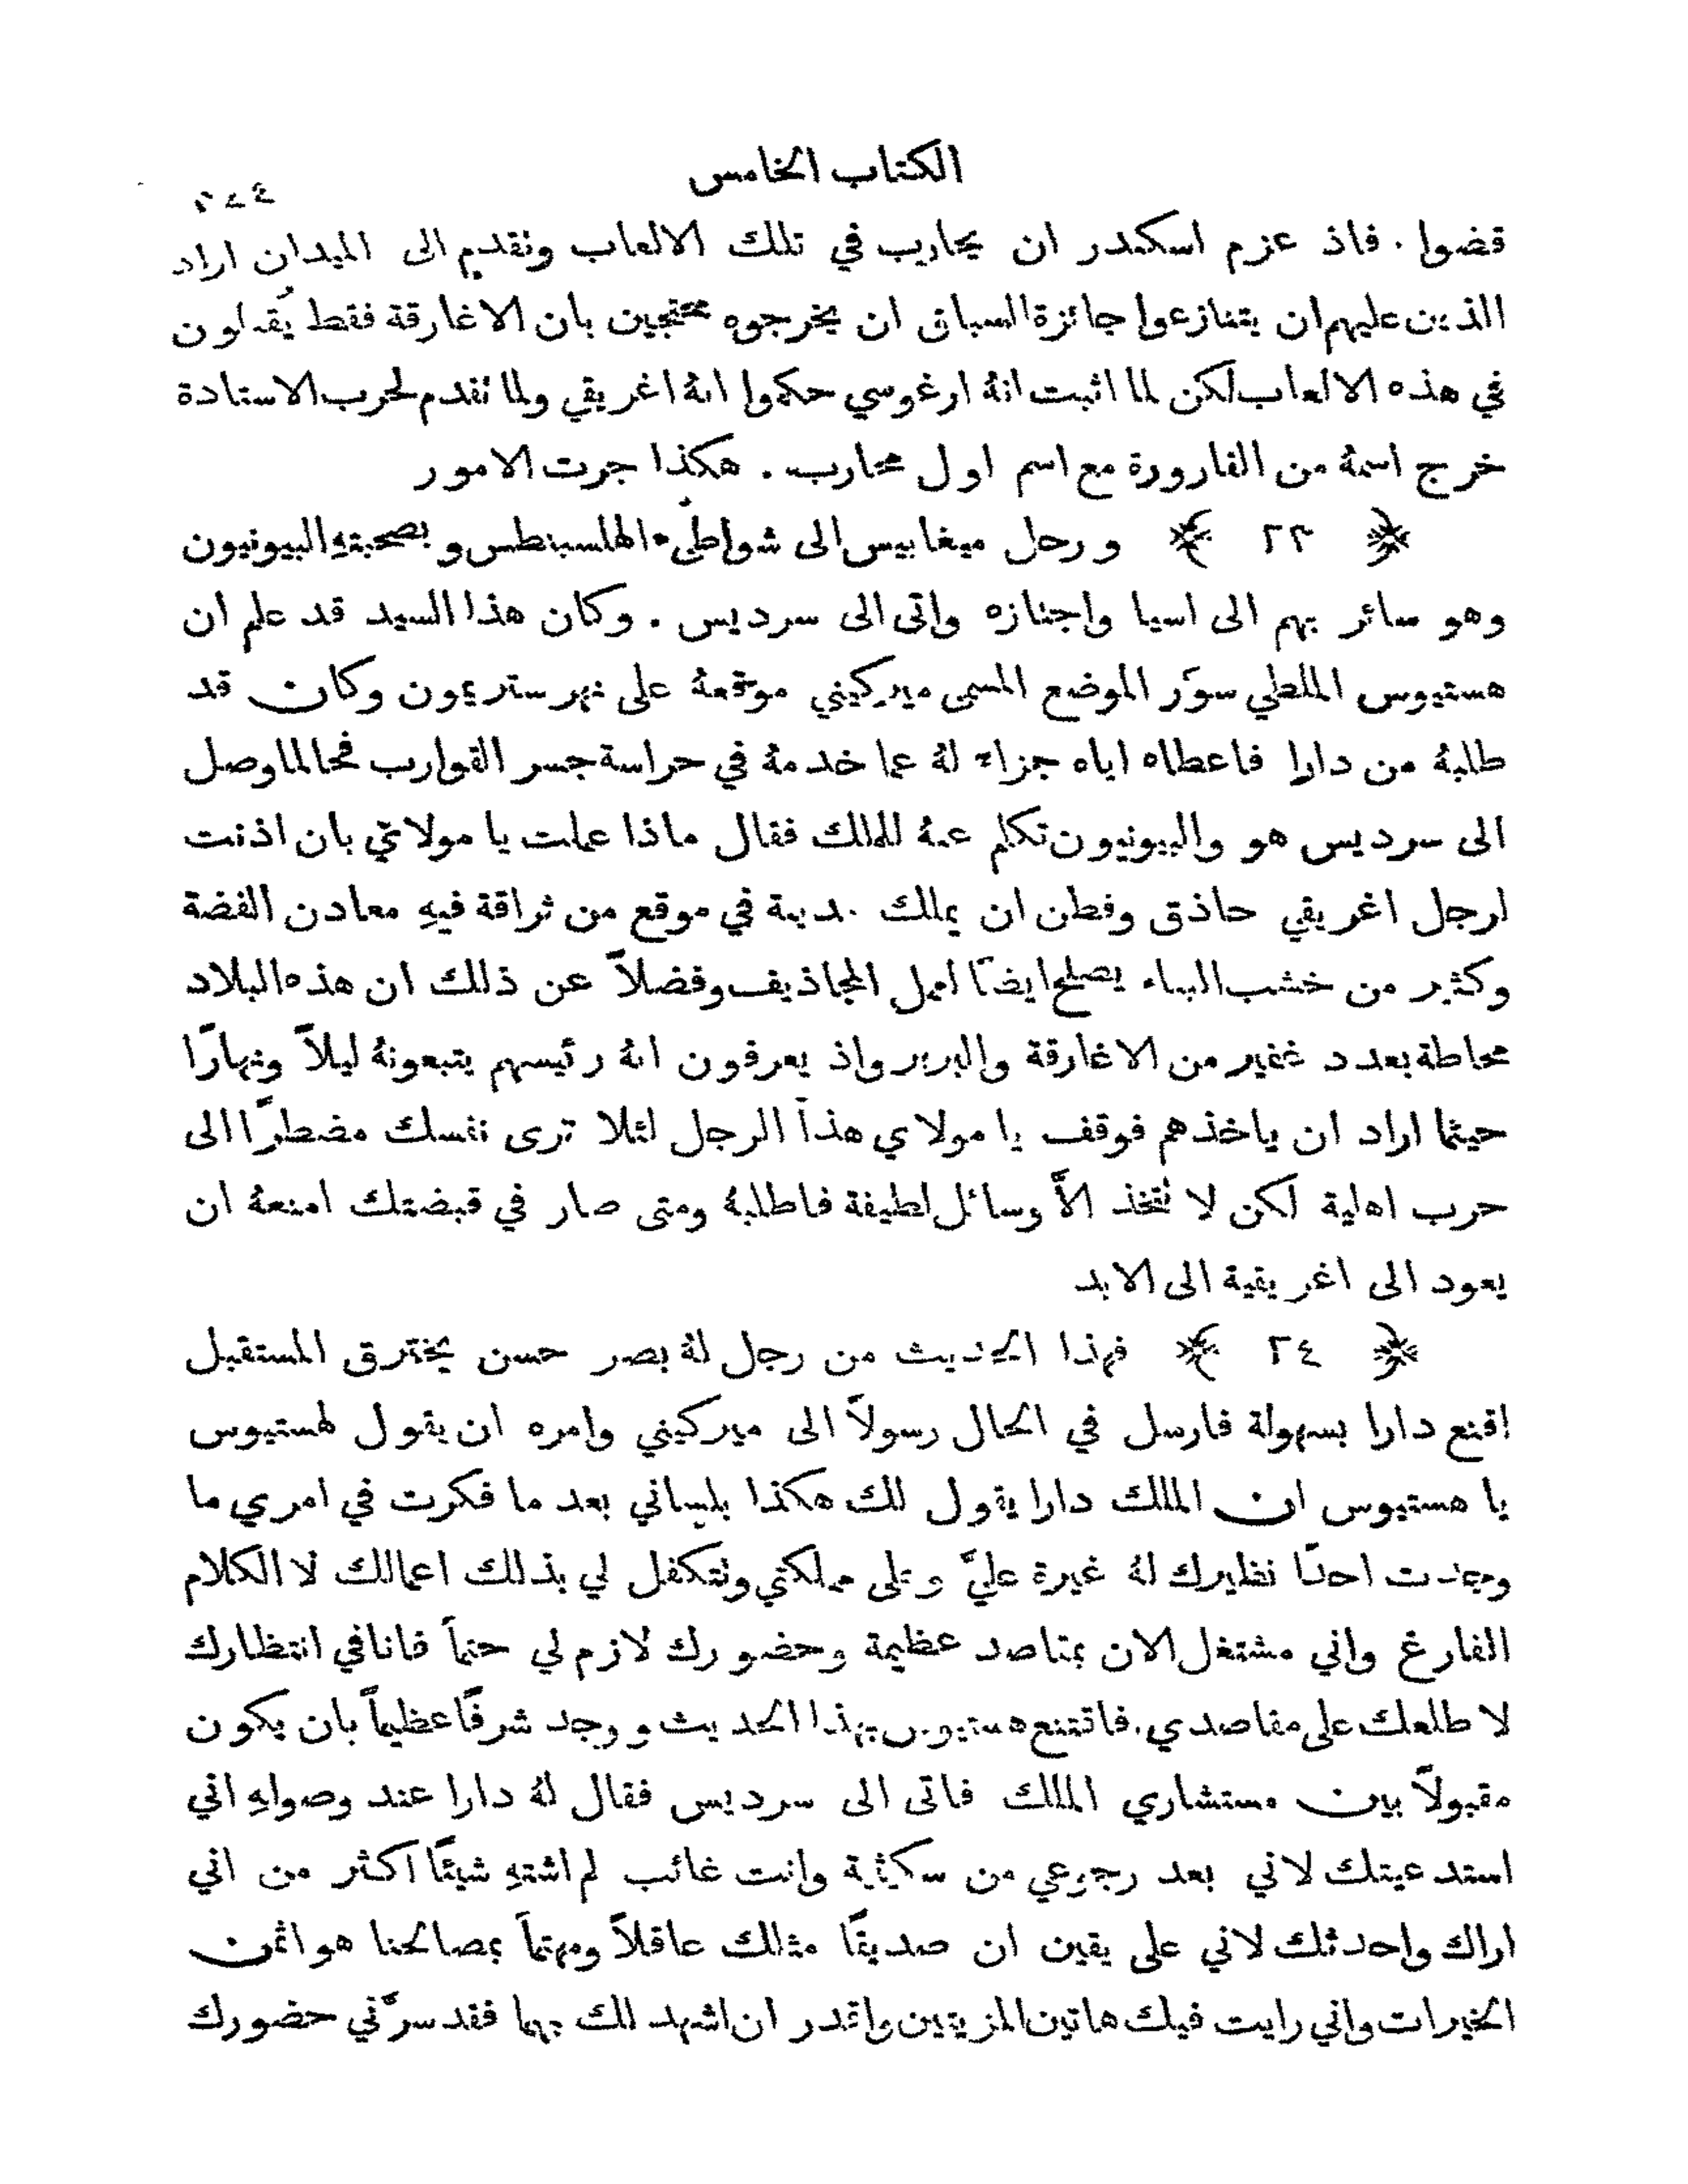 الكتاب الخامس
قضوا . فاذ عزم اسكندر ان يحارب في تلك الالعاب ونقدم الى الميدان اراد
الذين عليهم ان يتنازعوا جائزة السباق ان يخرجوه محتجين بان الاغارقة فقط يُقبلون
في هذه الالعاب لكن لما اثبت انهُ ارغوسي حكموا انهُ اغريقي ولما نقدم لحرب الاستادة
خرج اسمهُ من القارورة مع اسم اول محارب . هكذا جرت الامور
﴿ ٢٣ ﴾ ورحل ميغابيس الى شواطىء الهلسبنطس وبصحبتهِ البيونيون
وهو سائر بهم الى اسيا واجتازه واتى الى سرديس . وكان هذا السيد قد علم ان
هستيوس الملطي سوَّر الموضع المسمى ميركيني موقعهُ على نهر ستريمون وكان قد
طلبهُ من دارا فاعطاه اياه جزاء لهُ عما خدمهُ في حراسة جسر القوارب فحالما وصل
الى سرديس هو والبيونيون تكلم عنهُ للملك فقال ماذا عملت يا مولاي بان اذنت
لرجل اغريقي حاذق وفطن ان يملك مدينة في موقع من ثراقة فيهِ معادن الفضة
وكثير من خشب البناء يصلح ايضًا لعمل المجاذيف وفضلاً عن ذلك ان هذه البلاد
محاطة بعدد غفير من الاغارقة والبربر واذ يعرفون انهُ رئيسهم يتبعونهُ ليلاً ونهارًا
حيثما اراد ان ياخذهم فوقف يا مولاي هذا الرجل لئلا ترى نفسك مضطرًا الى
حرب اهلية لكن لا تتخذ الاَّ وسائل لطيفة فاطلبهُ ومتى صار في قبضتك امنعهُ ان
يعود الى اغريقية الى الابد
﴿ ٢٤ ﴾ فهذا الحديث من رجل لهُ بصر حسن يخترق المستقبل
اقنع دارا بسهولة فارسل في الحال رسولاً الى ميركيني وامره ان يقول لهستيوس
يا هستيوس ان الملك دارا يقول لك هكذا بلساني بعد ما فكرت في امري ما
وجدت احدًا نظيرك لهُ غيرة عليَّ وعلى مملكتي ونتكفل لي بذلك اعمالك لا الكلام
الفارغ واني مشتغل الان بمقاصد عظيمة وحضورك لازم لي حتماً فانا في انتظارك
لاطلعك على مقاصدي . فاقتنع هستيوس بهذا الحديث ووجد شرفًا عظيماً بان يكون
مقبولاً بين مستشاري الملك فاتى الى سرديس فقال لهُ دارا عند وصولهِ اني
استدعيتك لاني بعد رجوعي من سكيثية وانت غائب لم اشتهِ شيئًا اكثر من اني
اراك واحدثك لاني على يقين ان صديقًا مثلك عاقلاً ومهتماً بمصالحنا هو اثمن
الخيرات واني رايت فيك هاتين المزيتين واقدر ان اشهد لك بهما فقد سرَّني حضورك